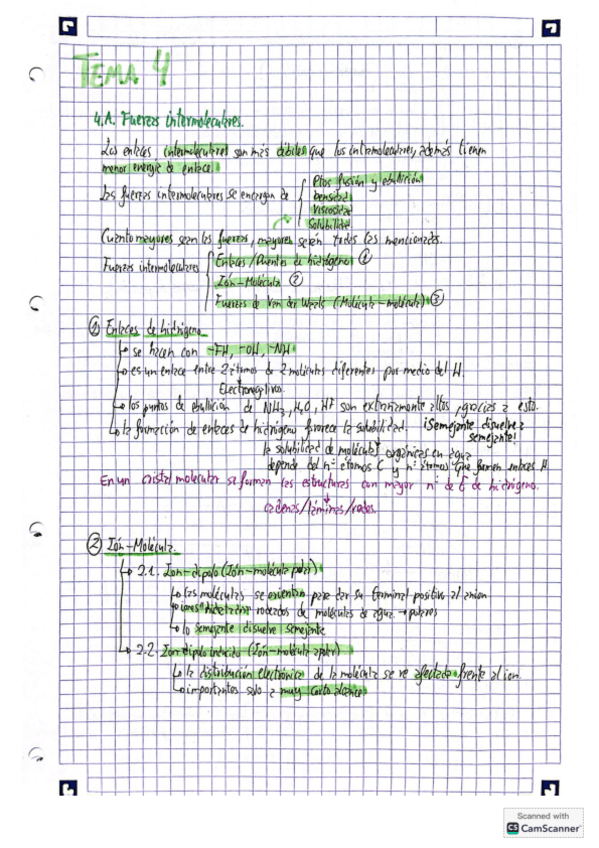 TEMA 4
4.A. Fuerzas intermoleculares.
Los enlaces intermoleculares son más débiles que los intramoleculares, además tienen
menor energía de enlace.
Las fuerzas intermoleculares se encargan de
Ptos fusión y ebullición
Densidad
Viscosidad
Solubilidad.
Cuanto mayores sean las fuerzas, mayores serán todos los mencionados.
Fuerzas intermoleculares
Enlaces/Puentes de hidrógeno ①
Ión-Molécula ②
Fuerzas de Van der Waals (Molécula-molécula) ③
① Enlaces de hidrógeno
se hacen con -FH, -OH, -NH
es un enlace entre 2 átomos de 2 moléculas diferentes por medio del H.
Electronegativos
los puntos de ebullición de NH₃, H₂O, HF son extremamente altos, gracias a esto.
la formación de enlaces de hidrógeno favorece la solubilidad. ¡Semejante disuelve a
semejante!
la solubilidad de moléculas orgánicas en agua
depende del nº átomos C y nº átomos que forman enlaces H.
En un cristal molecular se forman las estructuras con mayor nº de E de hidrógeno.
cadenas/láminas/redes.
② Ión-Molécula.
2.1. Ion-dipolo (Ión-molécula polar)
las moléculas se orientan para dar su terminal positivo al anion
iones rodeados de moléculas de agua → polares
lo semejante disuelve semejante
2.2. Ion-dipolo inducido (Ión-molécula apolar)
la distribución electrónica de la molécula se ve afectada frente al ion.
importantes solo a muy corto alcance
Scanned with
CS CamScanner